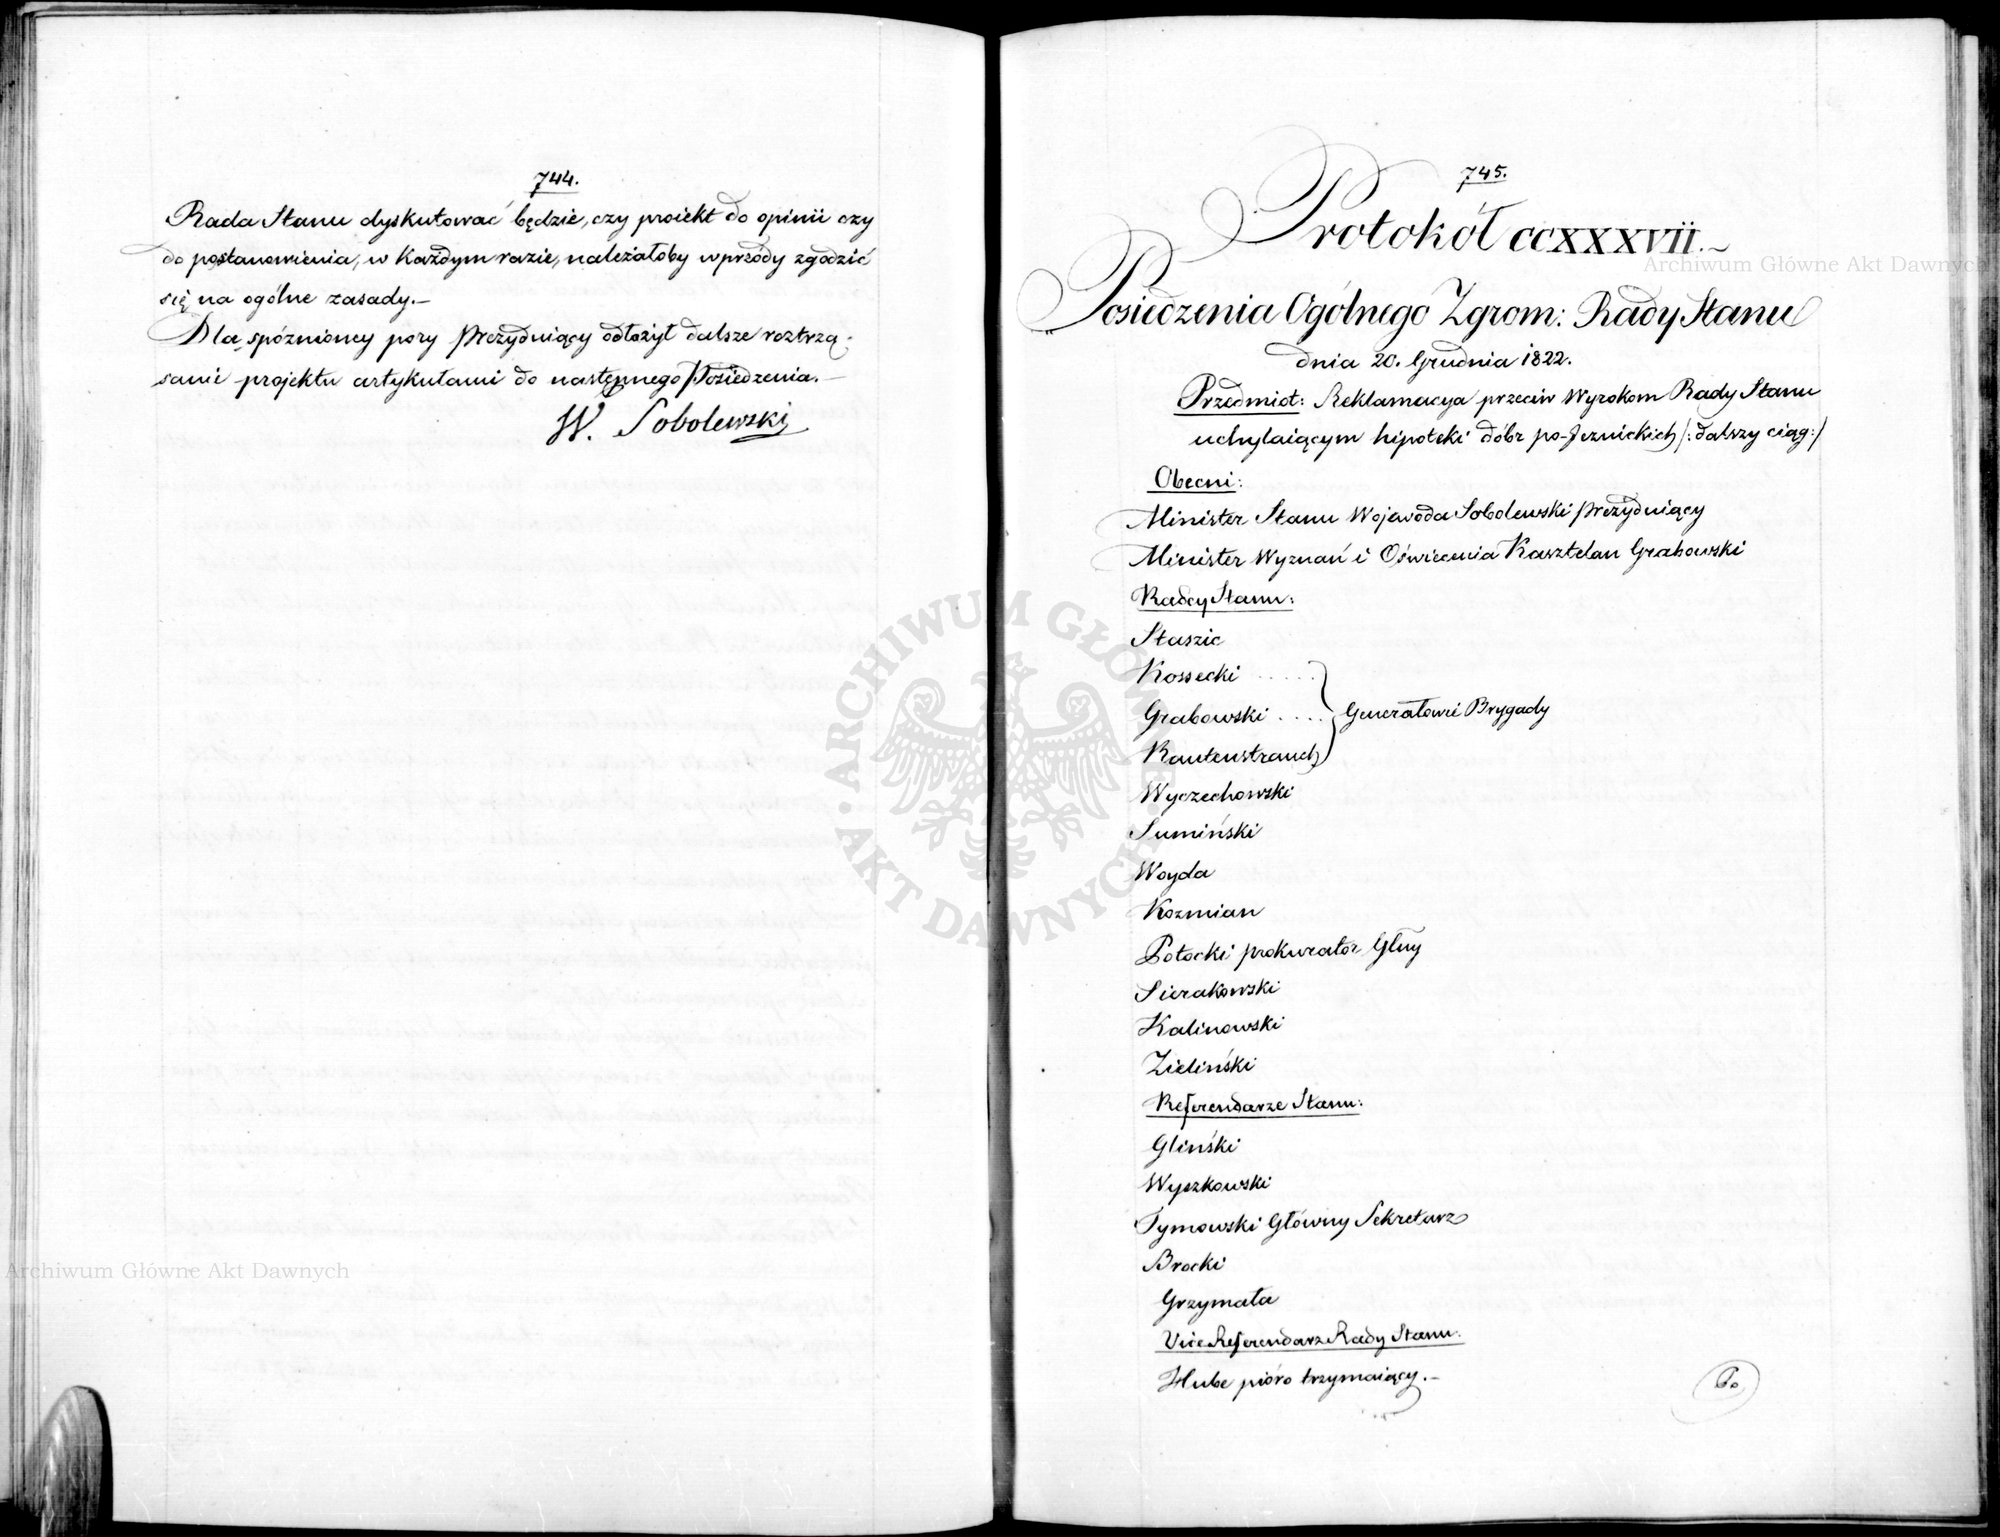 744.
Rada Stanu dyskutować będzie, czy proiekt do opinii czy
do postanowienia, w każdym razie, należałoby wprzódy zgodzić
się na ogólne zasady.—
Dla spóźnioney pory Prezyduiący odłożył dalsze roztrzą-
sanie projektu artykułami do następnego Posiedzenia.—
W. Sobolewski
745.
Protokół CCXXXVII.~
Posiedzenia Ogólnego Zgrom: Rady Stanu
dnia 20. Grudnia 1822.
Przedmiot: Reklamacya przeciw Wyrokom Rady Stanu
uchylaiącym hipoteki dóbr po-Jeznickich/: dalszy ciąg:/
Obecni:
Minister Stanu Wojewoda Sobolewski Prezyduiący
Minister Wyznań i Oświecenia Kasztelan Grabowski
Radcy Stanu:
Staszic
Kossecki .....
Grabowski .... Generałowie Brygady
Rautenstrauch
Wyczechowski
Sumiński
Woyda
Kozmian
Potocki prokurator Głny
Sierakowski
Kalinowski
Zieliński
Referendarze Stanu:
Gliński
Wyczkowski
Tymowski Główny Sekretarz
Brocki
Grzymała
Vice Referendarz Rady Stanu:
Hube pióro trzymaiący.—
Po
Archiwum Główne Akt Dawnych
Archiwum Główne Akt Dawnych
ARCHIWUM GŁÓWNE AKT DAWNYCH